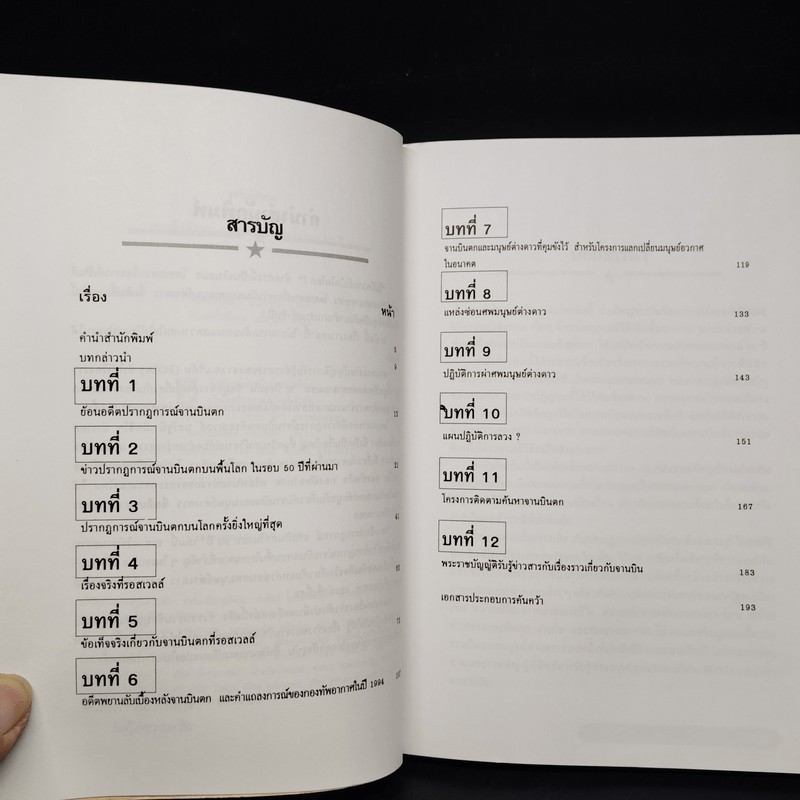 สารบัญ
เรื่อง
หน้า
คำนำสำนักพิมพ์
บทกล่าวนำ
บทที่ 1
ย้อนอดีตปรากฏการณ์จานบินตก
บทที่ 2
ข่าวปรากฏการณ์จานบินตกบนพื้นโลก ในรอบ 50 ปีที่ผ่านมา
บทที่ 3
ปรากฏการณ์จานบินตกบนโลกครั้งยิ่งใหญ่ที่สุด
บทที่ 4
เรื่องจริงที่รอสเวลล์
บทที่ 5
ข้อเท็จจริงเกี่ยวกับจานบินตกที่รอสเวลล์
บทที่ 6
อดีตพยานลับเบื้องหลังจานบินตก และคำแถลงการณ์ของกองทัพอากาศในปี 1994
บทที่ 7
จานบินตกและมนุษย์ต่างดาวที่คุมขังไว้ สำหรับโครงการแลกเปลี่ยนมนุษย์อวกาศ
ในอนาคต 119
บทที่ 8
แหล่งซ่อนศพมนุษย์ต่างดาว 133
บทที่ 9
ปฏิบัติการผ่าศพมนุษย์ต่างดาว 143
บทที่ 10
แผนปฏิบัติการลวง ? 151
บทที่ 11
โครงการติดตามค้นหาจานบินตก 167
บทที่ 12
พระราชบัญญัติรับรู้ข่าวสารกับเรื่องราวเกี่ยวกับจานบิน 183
เอกสารประกอบการค้นคว้า 193